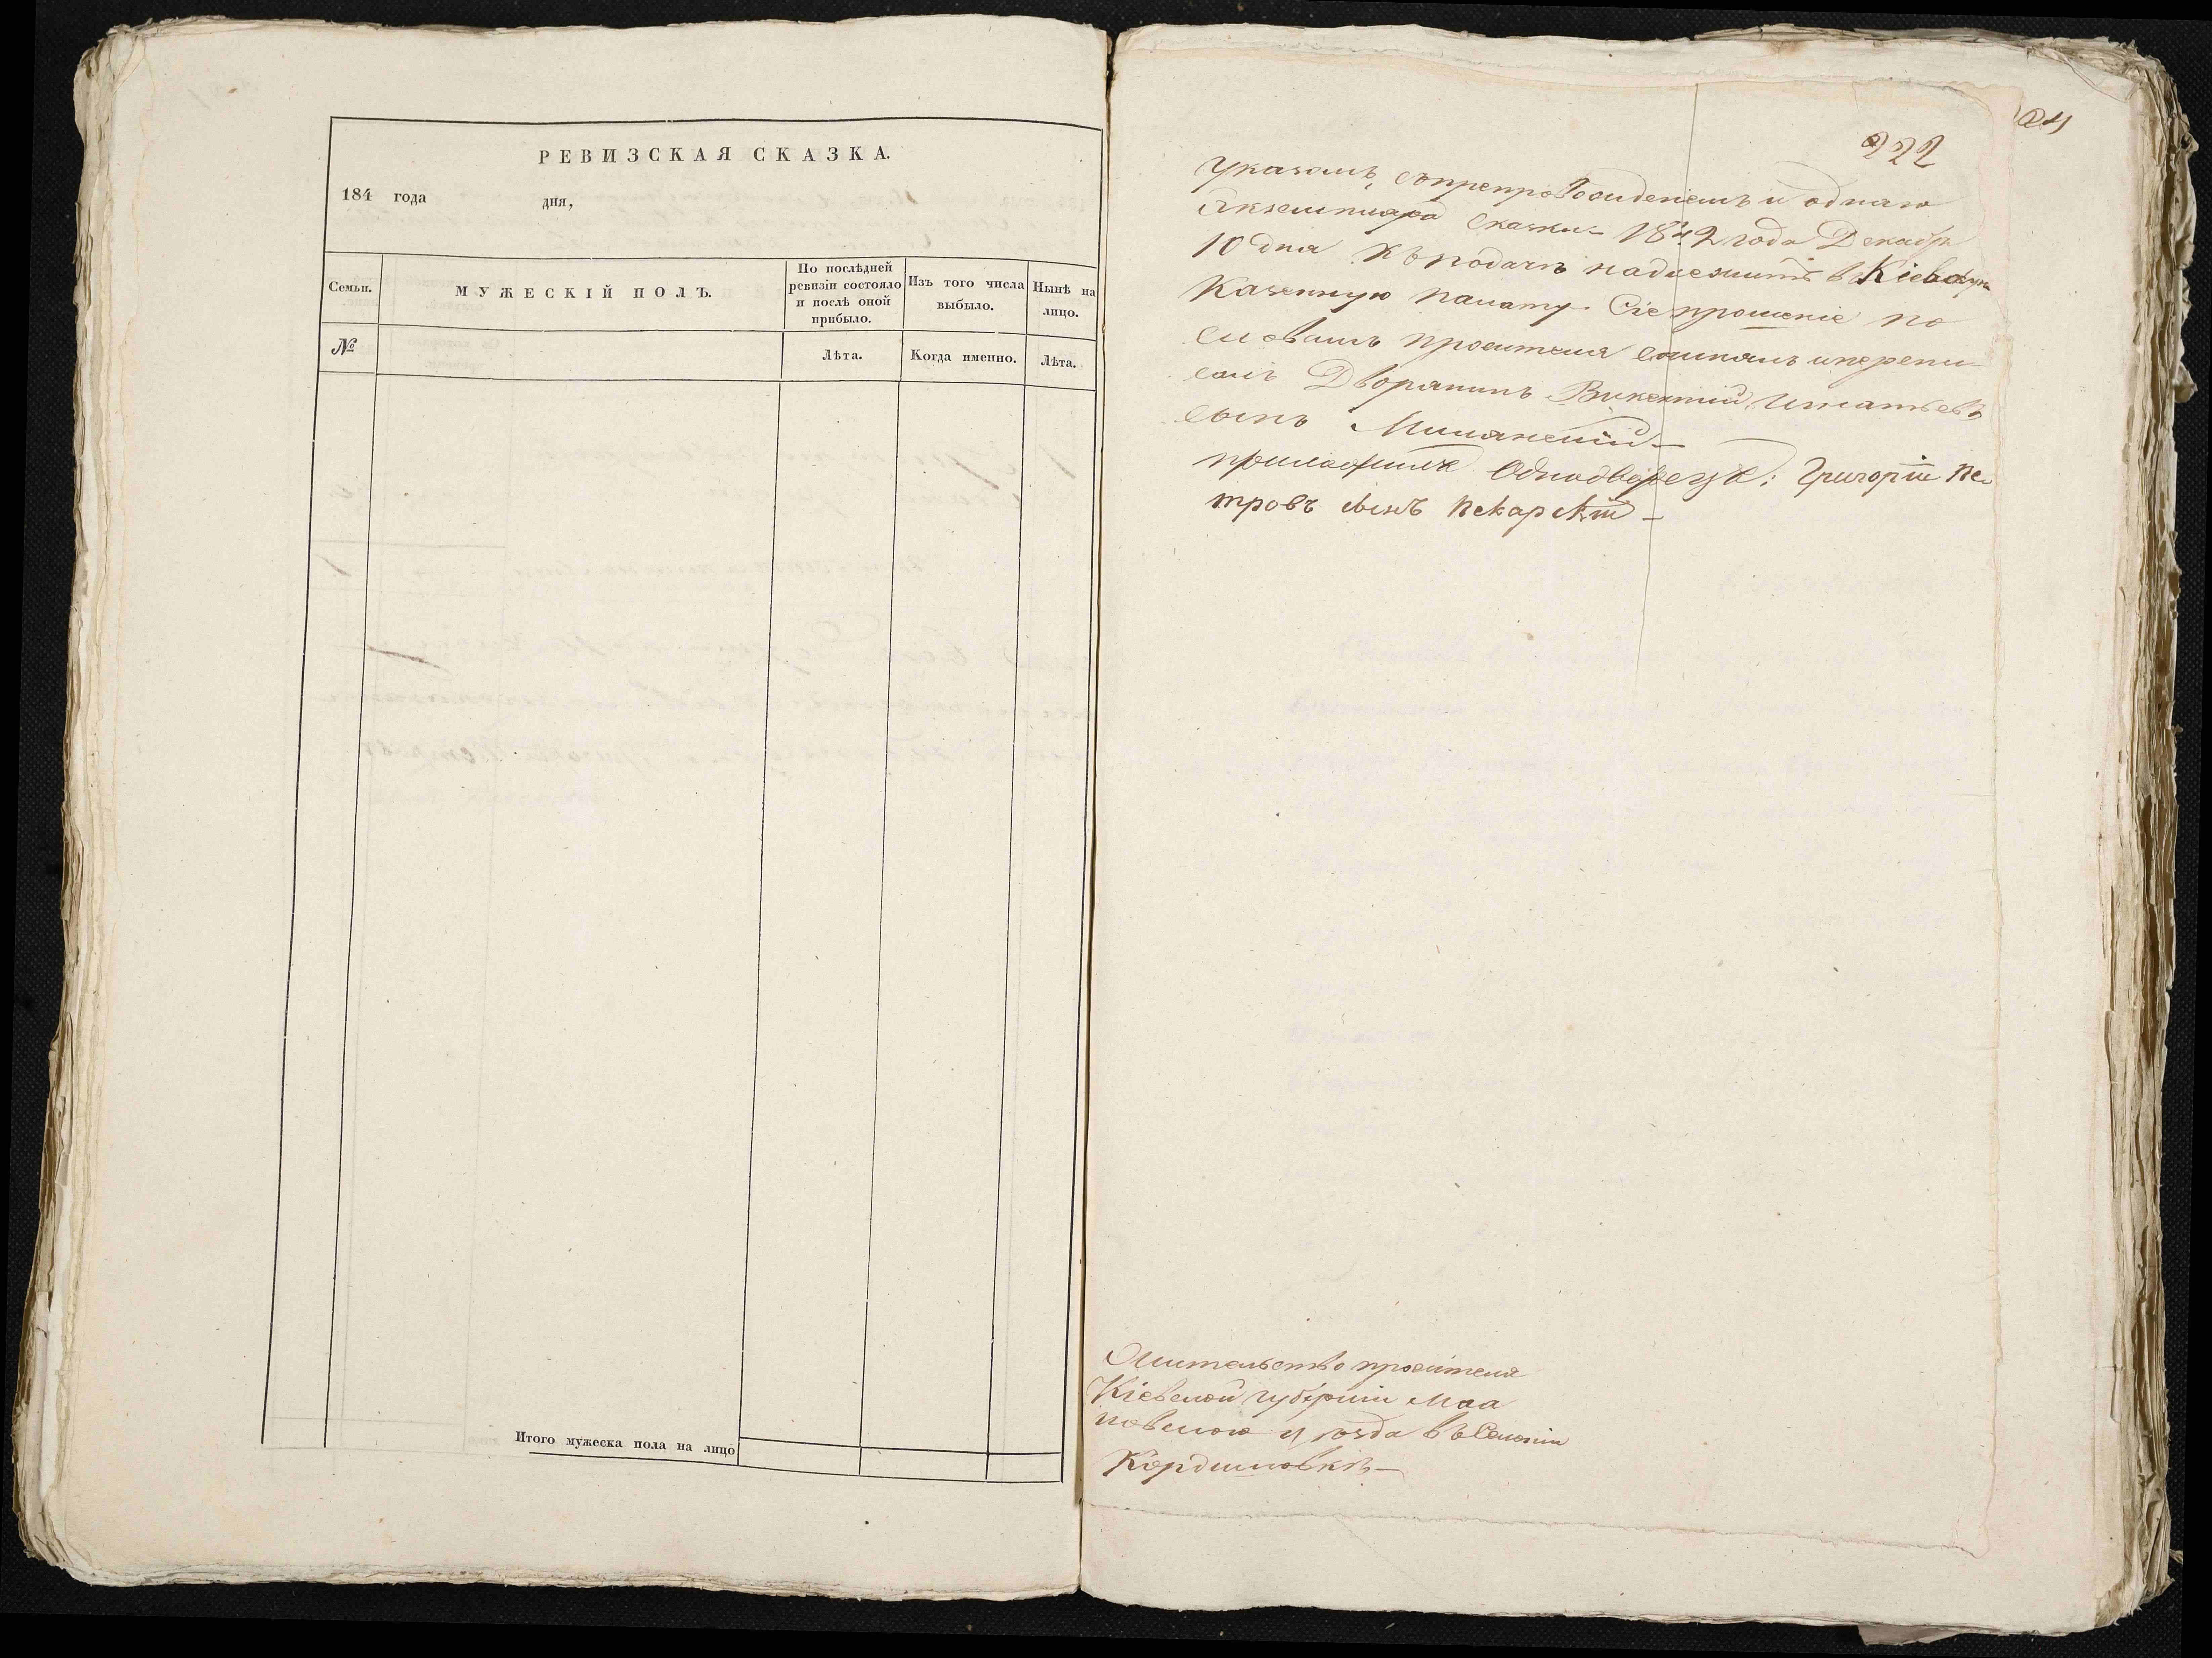 РЕВИЗСКАЯ СКАЗКА.
184 года дня,
Семьи.
МУЖЕСКІЙ ПОЛЪ.
По послѣдней
ревизіи состояло
и послѣ оной
прибыло.
Изъ того числа
выбыло.
Нынѣ на
лицо.
№
Лѣта.
Когда именно.
Лѣта.
Итого мужеска пола на лицо
222
указомъ, съпрепровожденіемъ и однаго
Экземпляра сказки 1842 года Декабря
10 дня Къ подачѣ надлежитъ в Кіевскую
Казенную палату. Сіе прошеніе по
словамъ просителя сочинялъ и перепи
салъ Дворянинъ Викентій Игнатьевъ
сынъ
Однодворецъ: Григорій Пе
тровъ сынъ Пекарскій
Жительство просителя
Кіевской губерніи Маха
новского уѣзда въ Селеніи